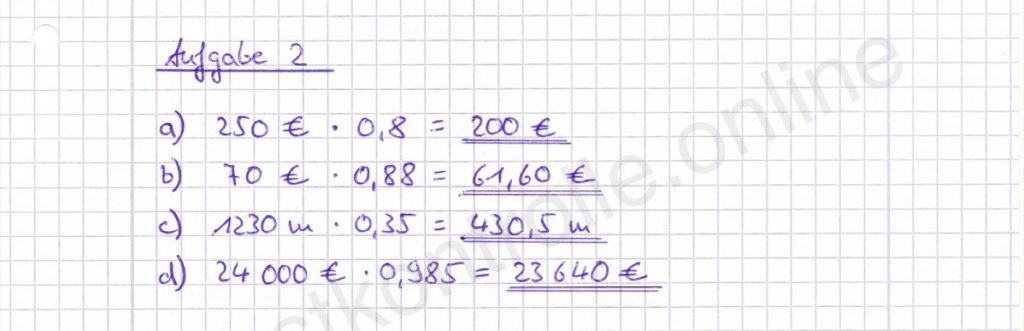 Aufgabe 2
a) 250 € · 0,8 = 200 €
b) 70 € · 0,88 = 61,60 €
c) 1230 m · 0,35 = 430,5 m
d) 24 000 € · 0,985 = 23 640 €
stkontrolle.online